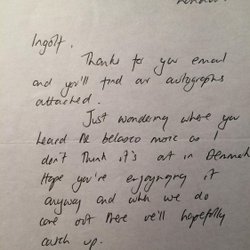 London.
Ingolf,
Thanks for your email
and you'll find our autographs
attached.
Just wondering where you
heard the belasco more as I
don't think it's out in Denmark
Hope you're engjoying it
anyway and when we do
come out there we'll hopefully
catch up.